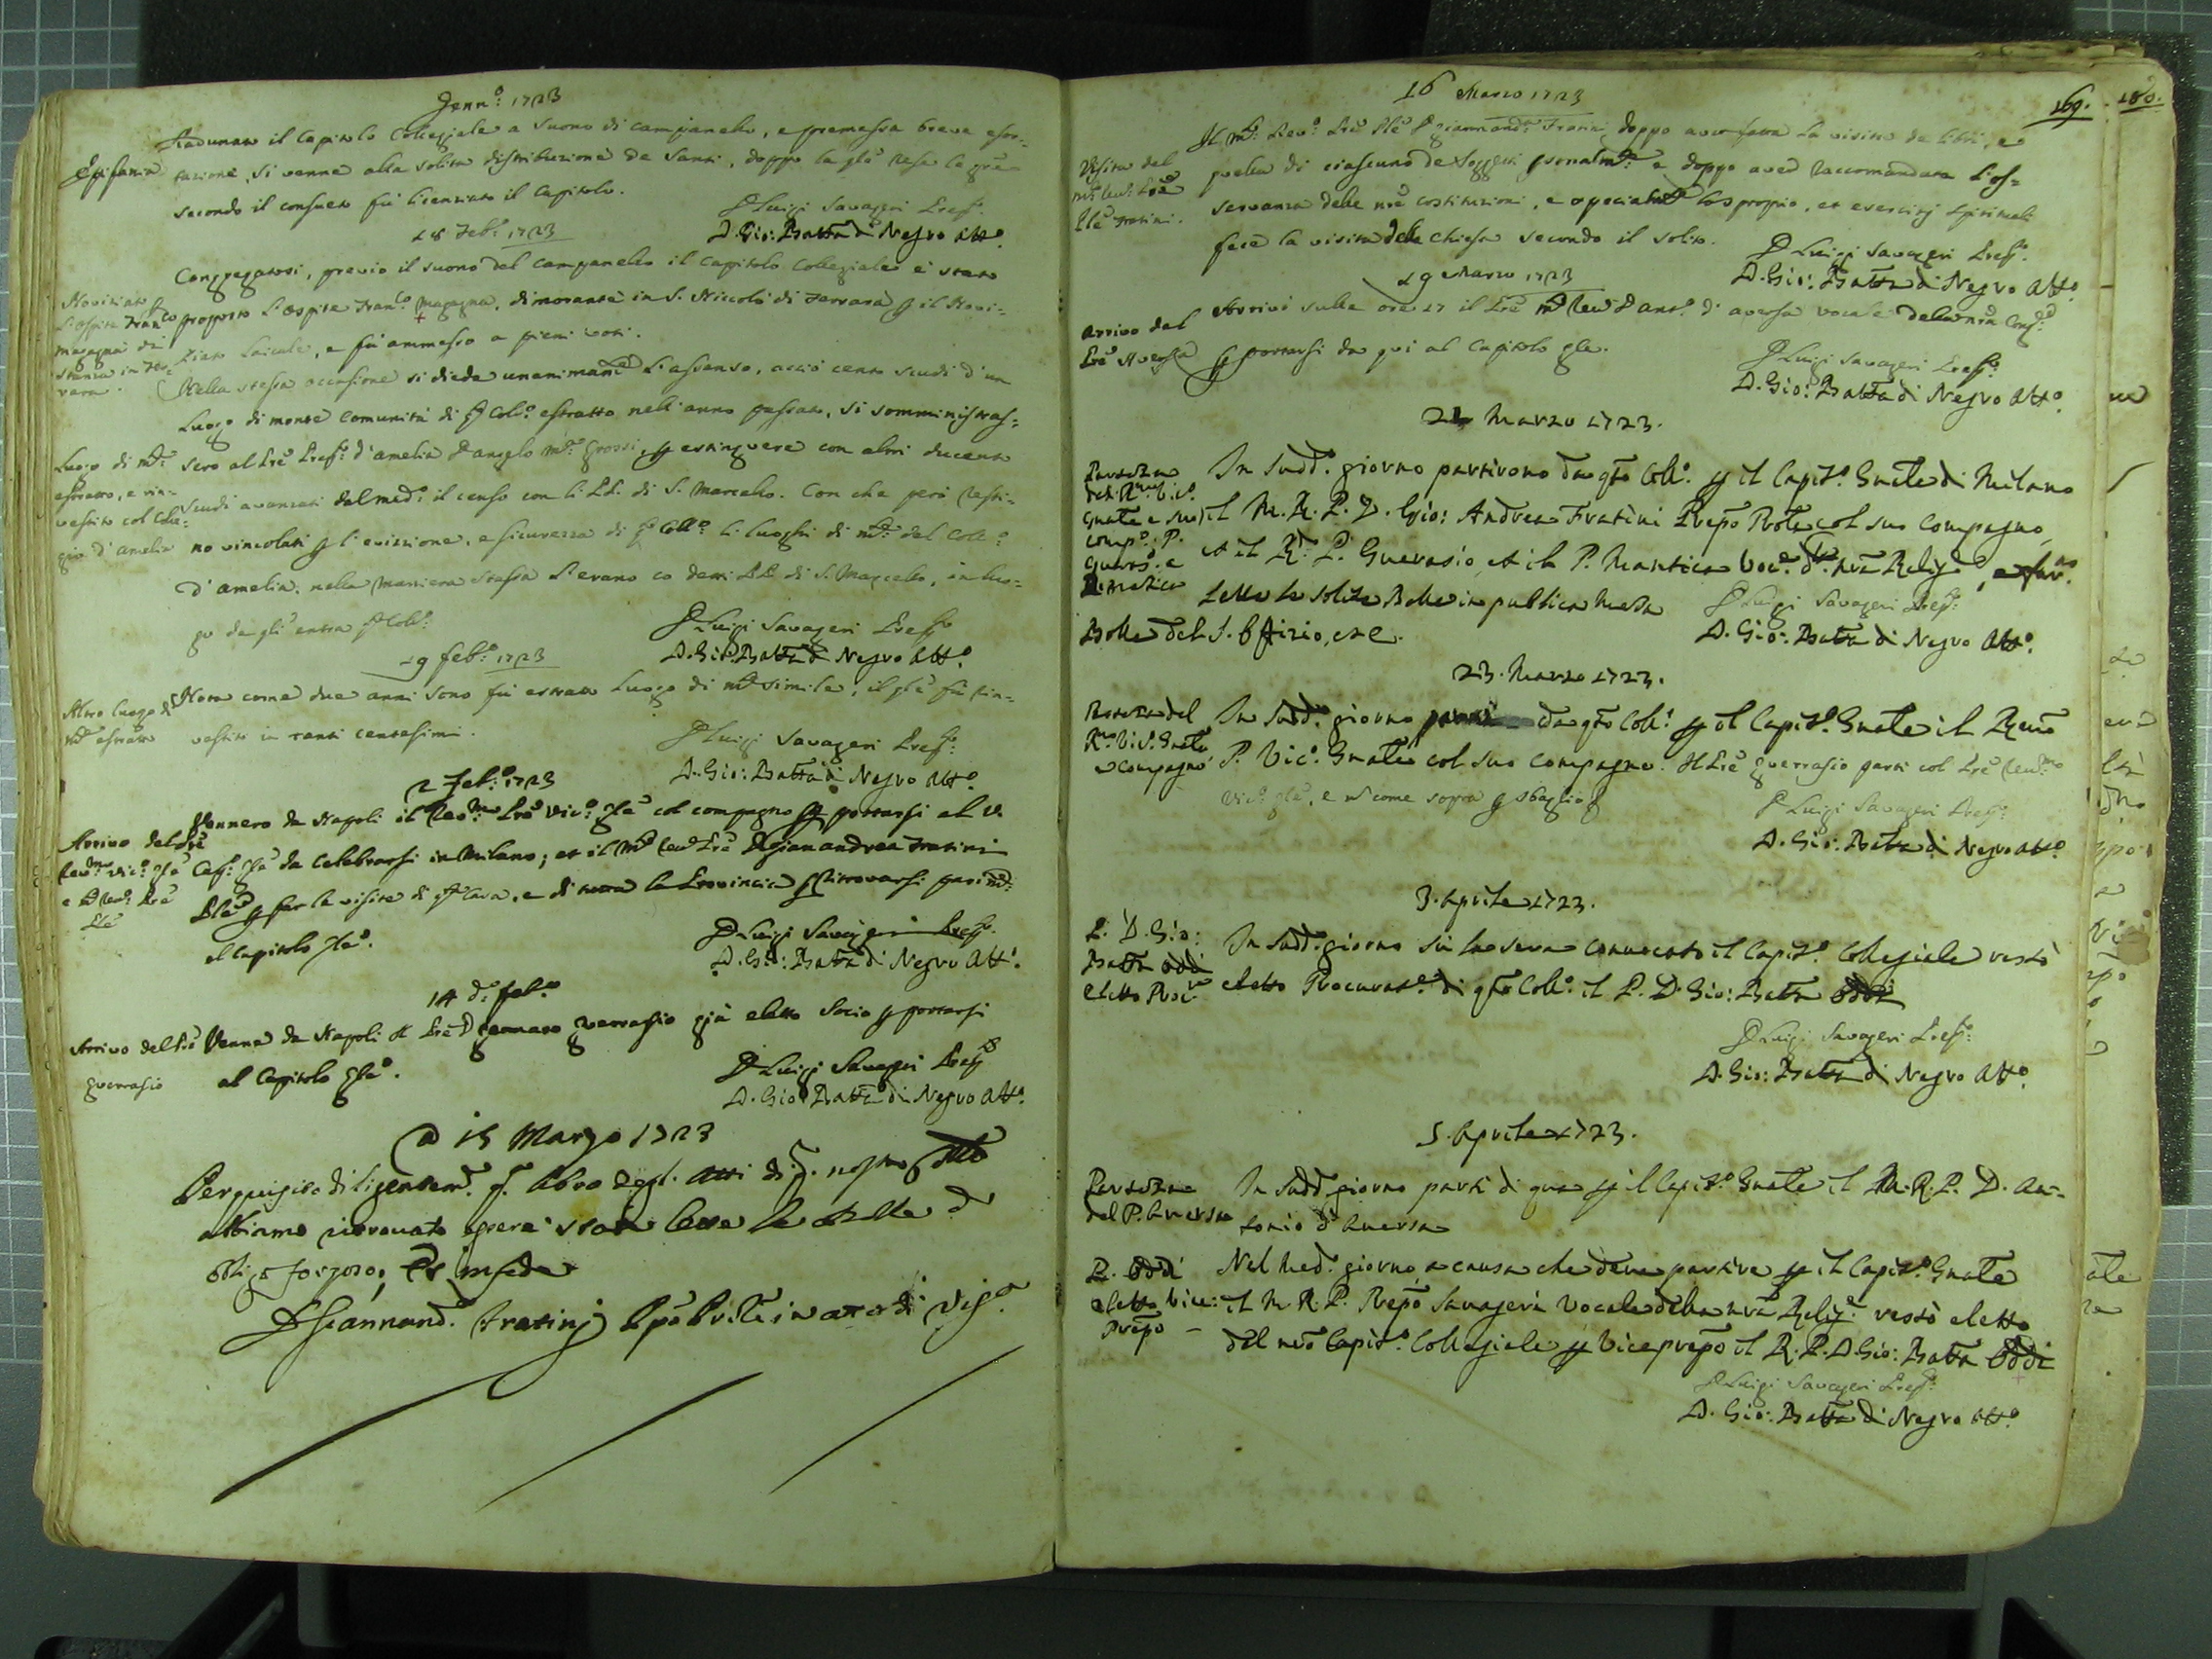 Genn.º 1723
Epifania
Radunato il Capitolo Collegiale a suono di campanello, e premessa breve esor-
tazione, si venne alla solita distribuzione de Santi, doppo la qle rese le gre
secondo il consueto fù licenziato il Capitolo.
P Luigi Savageri Prep.
D. Gio: Batta di Negro Att.º
18 Feb.º 1723
Congregatosi, previo il suono del campanello il Capitolo Collegiale è stato
Noviziato p
l'ospite Fran.co
Magagna di
stanza in Fer-
rara.
proposto l'ospite Fran.co Magagna, dimorante in S. Niccolò di Ferrara p il Novi-
ziato laicale, e fù ammesso a pieni voti.
Nella stessa occasione si diede unanimam.te l'assenso, acciò cento scudi d'un
Luogo di monte Comunità di qto Coll.º estratto nell'anno passato, si somministras-
Luogo di M.te
estratto, e rin-
vestito col Colle-
gio d'Amelia
sero al Pre Prep.º d'Amelia D Angelo M.a Grossi, p estinguere con altri ducento
scudi avanzati dal med.º il censo con li PP. di S. Marcello. Con che però resti-
no vincolati p l'evizione, e sicurezza di qto Coll.º li luoghi di M.te del Coll.º
d'Amelia, nella maniera stessa l'erano co detti PP. di S. Marcello, in luo-
go de qli entra qto Coll.º
P Luigi Savageri Prep.º
D. Gio: Batta di Negro Att.º
19 feb.º 1723
Altro luogo di
M.te estratto
Nota come due anni sono fù estratto Luogo di M.te simile, il qle fù rin-
vestito in tanti centesimi.
P Luigi Savageri Prep.º
D. Gio: Batta di Negro Att.º
2 Feb.º 1723
Arrivo del Pre
Rev.mo Vic.º Gle
e M Rev. Pre
Ple
Vennero da Napoli il Rev.mo Pre Vic.º Gle col compagno p portarsi al V.
Cap.º Gle da celebrarsi in Milano; et il M.to Rev Pre D Gianandrea Fratini
Ple p far la visita di qta Casa, e di tutta la Provincia p ritrovarsi parim.te
al Capitolo Gle.
P Luigi Savageri Prep.
D. Gio: Batta di Negro Att.º
14 d.º feb.º
Arrivo del Pre
Guerrasio
Venne da Napoli il Pre D Gennaro Guerrasio già eletto Socio p portarsi
al Capitolo Gle.
P Luigi Savageri Prep.º
D. Gio: Batta di Negro Att.º
A 15 Marzo 1723
Perquisito diligentem.te q. libro degl. Atti di q. nostro Coll.º
abbiamo ritrovato essere state lette le Bolle d
obligo Et in fede
D Giannand.a Fratinj Ppo Prlê in atto di Vis.ª
16 Marzo 1723
169. 180.
Visita del
M. Rev. Pre
Ple Fratini.
Il M. Rev.º Pre Ple D Giannand.a Fratini doppo aver fatta la visita de libri, e
quella di ciascuno de Soggetti psonalm.te e doppo aver raccomandata l'os-
servanza delle nre costituzioni, e specialm.te lo sproprio, et esercizj spirituali
fece la visita della Chiesa secondo il solito.
P Luigi Savageri Prep.º
D. Gio: Batta di Negro Att.º
19 Marzo 1723
Arrivo del
Pre Aversa
Arrivò sulle ore 27 il Pre M Rev D Ant.º d'Aversa vocale della nra Cong.e
p portarsi da qui al Capitolo gle.
P Luigi Savageri Prep.º
D. Gio: Batta di Negro Att.º
21 Marzo 1723.
Partenza
del R.mo Vic.º
Gnale e suo
comp.º P.
Guaras.º e
P. Mantica
In sudd.º giorno partirono da qto Coll.º p il Capit.º Gnale di Milano
il M. R. P. D. Gio: Andrea Fratini Prepo Prole col suo Compagno,
et il R. P. Guerasio, et il P. Mantica Voc.e d. nra Relig.
Lette le solite Bolle in publica Mensa
Bolle del S. Offizio, et c.
P Luigi Savageri Prep.º
D. Gio: Batta di Negro Att.º
23. Marzo 1723.
Partenza del
R.mo Vic.º Gnale
e Compagno
In sudd.º giorno partì da qto Coll.º p il Capit.º Gnale il Rmo
P. Vic.º Gnale col suo Compagno. Il Pre Guerrasio partì col Pre Rev.mo
Vic.º gle, e nò come sopra p sbaglio
P Luigi Savageri Prep.º
D. Gio: Batta di Negro Att.º
3. Aprile 1723.
P. D. Gio:
Batta Oddi
eletto Proc.re
In sudd.º giorno sù la sera convocato il Capit.º Collegiale restò
eletto Procurat.e di qto Coll.º il P. D. Gio: Batta Oddi
P Luigi Savageri Prep.º
D. Gio: Batta di Negro Att.º
5. Aprile 1723.
Partenza
del P. Aversa
In sudd.º giorno partì di qua p il Capit.º Gnale il M. R. P. D. An-
tonio d'Aversa
P. Oddi
eletto Vice:
Prepo
Nel med.º giorno a causa che deve partire p il Capit.º Gnale
il M. R. P. Prepo Savageri Vocale della nra Relig.e restò eletto
dal nro Capit.º Collegiale p Viceprepo il R. P. D. Gio: Batta Oddi
P Luigi Savageri Prep.º
D. Gio: Batta di Negro Att.º